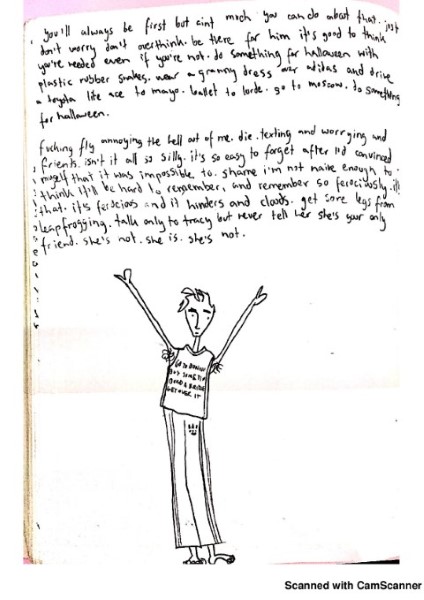 you'll always be first but aint much you can do about that. just
don't worry don't overthink. be there for him it's good to think
you're needed even if you're not. do something for halloween with
plastic rubber snakes. wear a granny dress over adidas and drive
a toyota lite ace to mayo. ballet to lorde. go to moscow. do something
for halloween.
fucking fly annoying the hell out of me. die. texting and worrying and
friends. isn't it all so silly. it's so easy to forget after I'd convinced
myself that it was impossible to. shame i'm not naive enough to
think it'll be hard to remember, and remember so ferociously. ill
that. it's ferocious and it hinders and clouds. get sore legs from
leapfrogging. talk only to tracy but never tell her she's your only
friend. she's not. she is. she's not.
GO TO
BUY SOME
BUILD A BRIDGE
GET OVER IT
Scanned with CamScanner